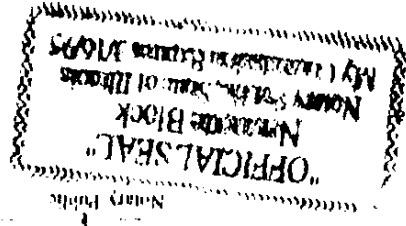 Notary Public
"OFFICIAL SEAL"
Block
Notary Public, State of Illinois
My Commission Expires 3/16/95